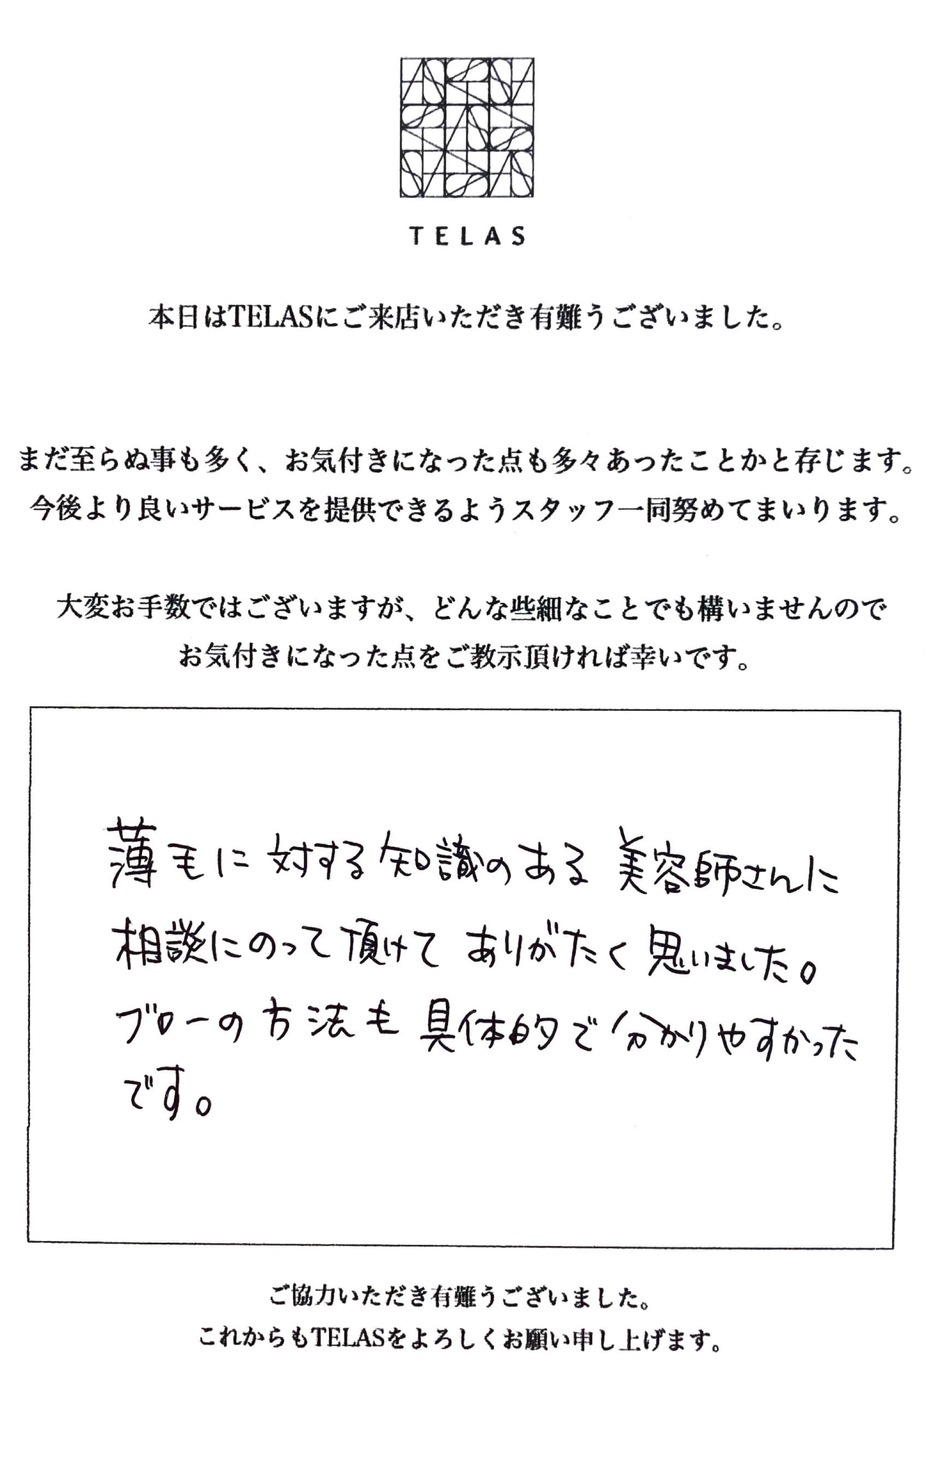 TELAS
本日はTELASにご来店いただき有難うございました。
まだ至らぬ事も多く、お気付きになった点も多々あったことかと存じます。
今後より良いサービスを提供できるようスタッフ一同努めてまいります。
大変お手数ではございますが、どんな些細なことでも構いませんので
お気付きになった点をご教示頂ければ幸いです。
薄毛に対する知識のある美容師さんに
相談にのって頂けてありがたく思いました。
ブローの方法も具体的で分かりやすかった
です。
ご協力いただき有難うございました。
これからもTELASをよろしくお願い申し上げます。